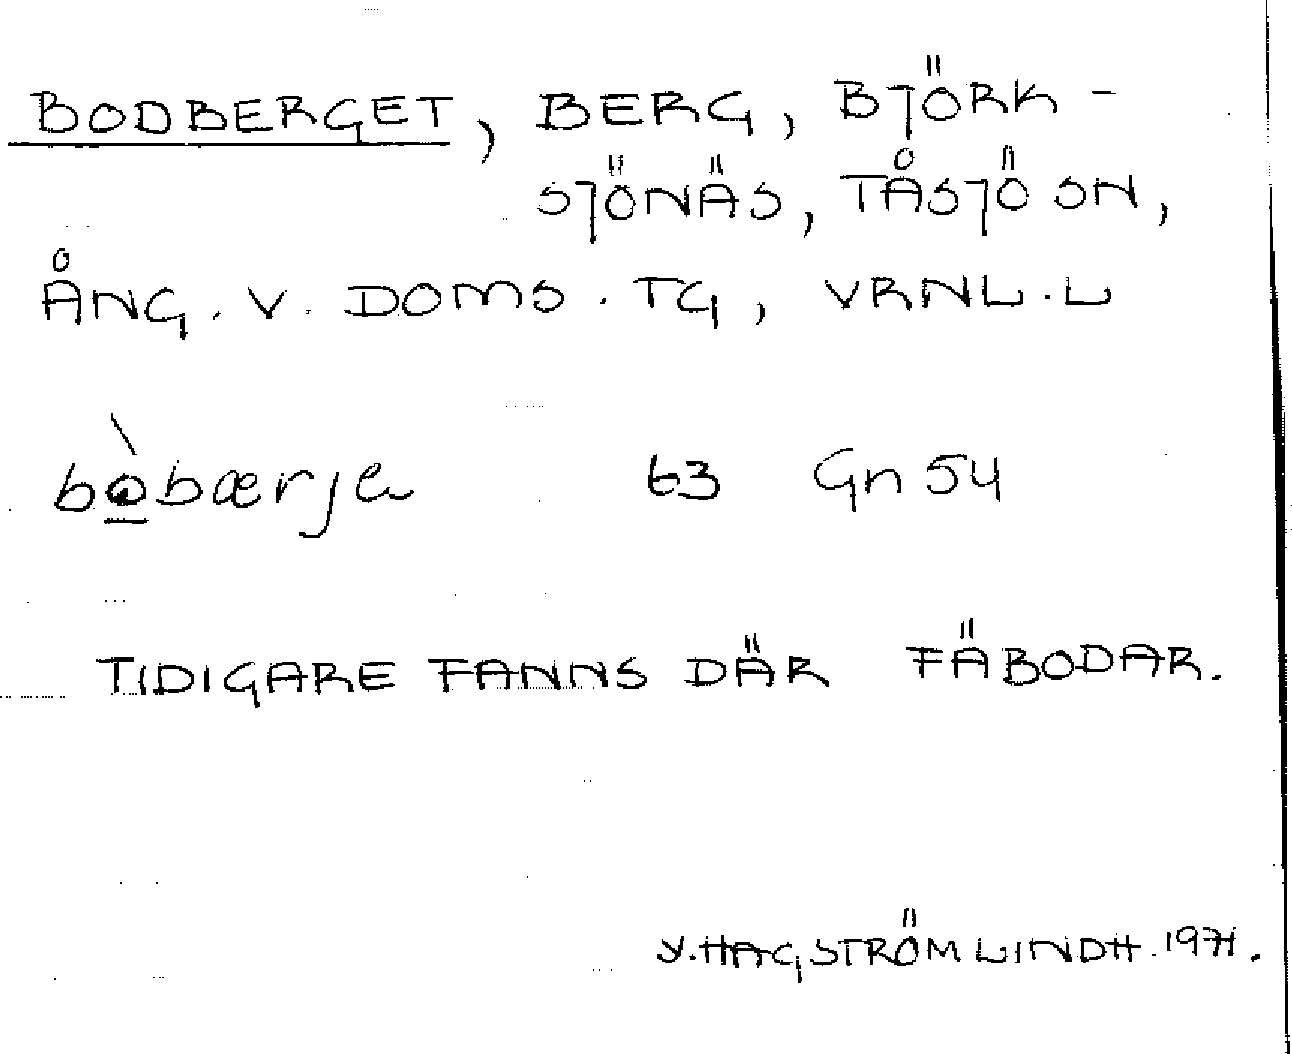 BODBERGET, BERG, BJÖRK-
SJÖNÄS, TÅSJÖ SN,
ÅNG. V. DOMS. TG, VRNL. L
bò̲bærja 63 Gn 54
TIDIGARE FANNS DÄR FÄBODAR.
Y. HAGSTRÖM LINDH. 1971.